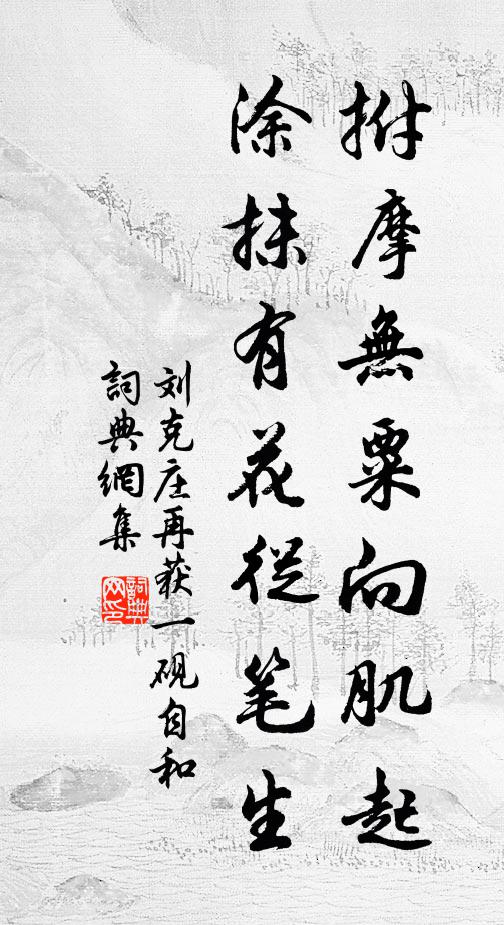 拊摩無粟向肌起
涂抹有花從笔生
刘克庄再获一硯自和
詞典網集